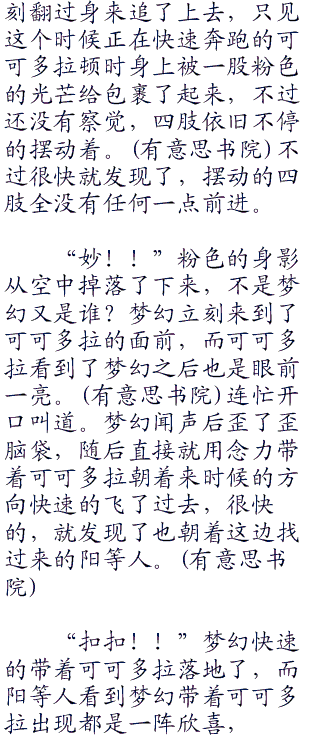 刻翻过身来追了上去，只见
这个时候正在快速奔跑的可
可多拉顿时身上被一股粉色
的光芒给包裹了起来，不过
还没有察觉，四肢依旧不停
的摆动着。(有意思书院)不
过很快就发现了，摆动的四
肢全没有任何一点前进。
“妙！！”粉色的身影
从空中掉落了下来，不是梦
幻又是谁？梦幻立刻来到了
可可多拉的面前，而可可多
拉看到了梦幻之后也是眼前
一亮。(有意思书院)连忙开
口叫道。梦幻闻声后歪了歪
脑袋，随后直接就用念力带
着可可多拉朝着来时候的方
向快速的飞了过去，很快
的，就发现了也朝着这边找
过来的阳等人。(有意思书
院)
“扣扣！！”梦幻快速
的带着可可多拉落地了，而
阳等人看到梦幻带着可可多
拉出现都是一阵欣喜，